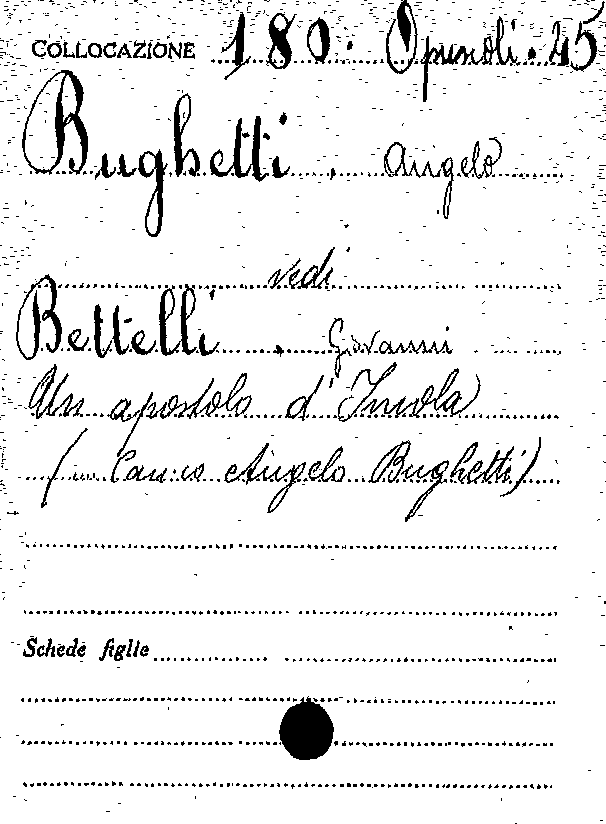 COLLOCAZIONE 180. Opuscoli. 45
Bughetti. Angelo
vedi
Bettelli. Giovanni
Un apostolo d'Imola
( Angelo Bughetti)
Schede figlie